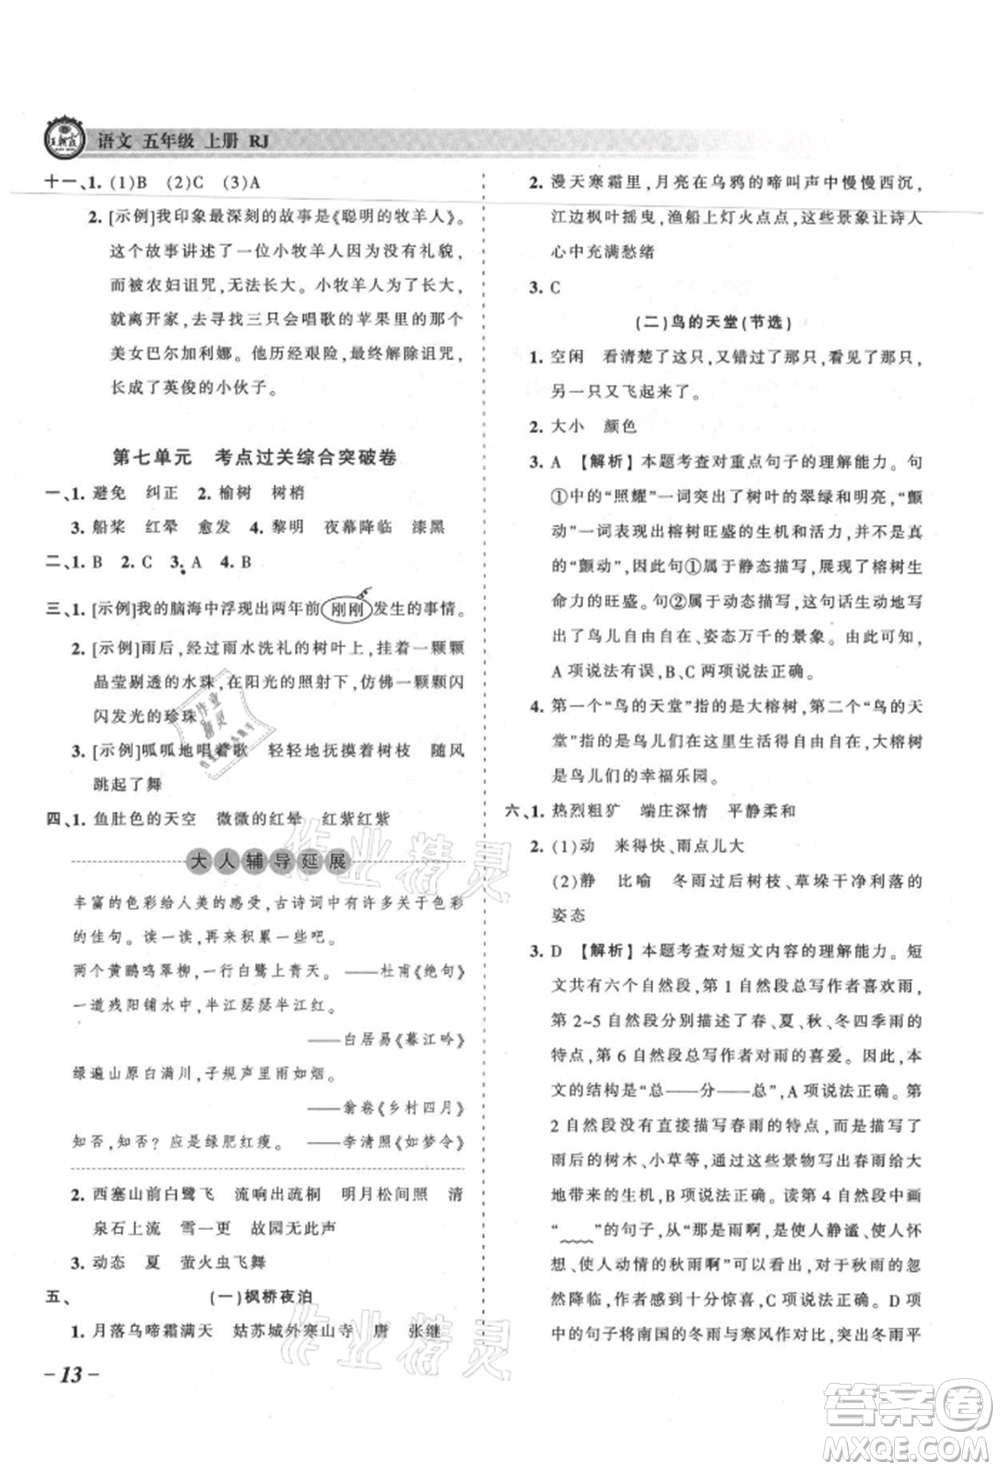 语文 五年级 上册 RJ
十一、1. (1)B (2)C (3)A
2. [示例]我印象最深刻的故事是《聪明的牧羊人》。
这个故事讲述了一位小牧羊人因为没有礼貌,
被农妇诅咒,无法长大。小牧羊人为了长大,
就离开家,寻找三只会唱歌的苹果里的
美女巴尔加利娜。他历经艰险,最终解开诅咒,
长成了英俊的小伙子。
第七单元 考点过关综合突破卷
一、1. 避免 纠正 2. 榆树 树梢
3. 船桨 红晕 愈发 4. 黎明 夜幕降临 漆黑
二、1. B 2. C 3. A 4. B
三、1. [示例]我的脑海中浮现出两年前刚刚发生的事情。
2. [示例]雨后,经过雨水洗礼的树叶上,一颗颗
晶莹剔透的水珠,在阳光的照射下,仿佛一颗颗闪
闪发光的珍珠
3. [示例]呱呱地唱着歌 轻轻地抚摸着树枝 随风
跳起了舞
四、1. 鱼肚色的天空 微微的红晕 红紫红紫
大人辅导延展
丰富的色彩给人美的感受,古诗词中有许多色彩
的佳句。读一读,再来积累一些吧。
两个黄鹂鸣翠柳,一行白鹭上青天。——杜甫《绝句》
一道残阳铺水中,半江瑟瑟半江红。
——白居易《暮江吟》
绿遍山原白满川,子规声里雨如烟。
——翁卷《乡村四月》
知否,知否?应是绿肥红瘦。——李清照《如梦令》
2. 西塞山前白鹭飞 流响出疏桐 明月松间照 清
泉石上流 雪一更 故园无此声
3. 动态 夏 萤火虫飞舞
五、 (一)枫桥夜泊
1. 月落乌啼霜满天 姑苏城外寒山寺 唐 张继
- 13 -
2. 漫天寒霜里,月亮在乌鸦的啼叫声中慢慢西沉,
江边枫叶摇曳,渔船上灯火点点,这些景象让诗人
心中充满愁绪
3. C
(二)鸟的天堂(节选)
1. 空闲 看清楚了这只,又错过了那只,看见了那只,
另一只又飞起来了。
2. 大小 颜色
3. A [解析]本题考查对重点句子的理解能力。句
①中的“照耀”一词突出了树叶的翠绿和明亮,“颤
动”一词表现出榕树旺盛的生机和活力,并不是真的
“颤动”,因此句①属于静态描写,展现了榕树生
命力的旺盛。句②属于动态描写,突出描写
的鸟儿自由自在、姿态万千的景象。由此可知,
A项说法有误,B、C两项说法正确。
4. 第一个“鸟的天堂”指的是大榕树,第二个“鸟的天
堂”指的是鸟儿们在这里自由自在地生活,大榕树
是鸟儿们的幸福乐园。
六、1. 热烈粗犷 端庄深情 平静柔和
2. (1)动 来得快、雨点儿大
(2)静 比喻 冬雨过后树枝、草垛干净利落的
姿态
3. D [解析]本题考查对短文内容的理解能力。短
文共有六个自然段,第1自然段总写作者喜欢雨,
第2~5自然段分别描述了春、夏、秋、冬四季雨的
特点,第6自然段总写作者对雨的喜爱。因此,本
文的结构是“总——分——总”,A项说法正确。第
2自然段没有直接描写春雨的特点,而是重点描写
雨后的树木、小草等,通过这些景物间接写出
春雨的特点,因此B项说法正确。读第4自然段中画
“ ”的句子,从“却是雨啊,使静谧、使怀想、
使人动情的秋雨啊”可以体会到作者对秋雨
悄然降临,感到十分惊喜,C项说法正确。D项
中的句子将南国的冬雨与寒风作对比,突出冬雨平
作业精灵
答案圈
MXQE.COM